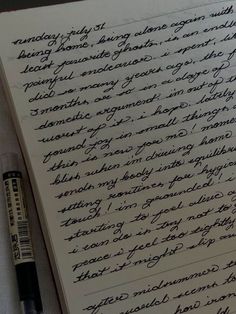 sunday, july 31
being home, being alone again with
least favourite ghosts, is an endle
painful endeavor. i spent
did so many years ago, the f
3 months or so in a sloge of
domestic argument. im out of t
worst of it, i hope. lately
found joy in small things
this is new for me! mome
blish when im driving home
sends my body into equilibri
setting routines for hygie
tously! im grounded! i
starting to feel alive a
i can do is try not to
peace i feel too tightly
that it might slip
after midsummer t
seems to
how iron